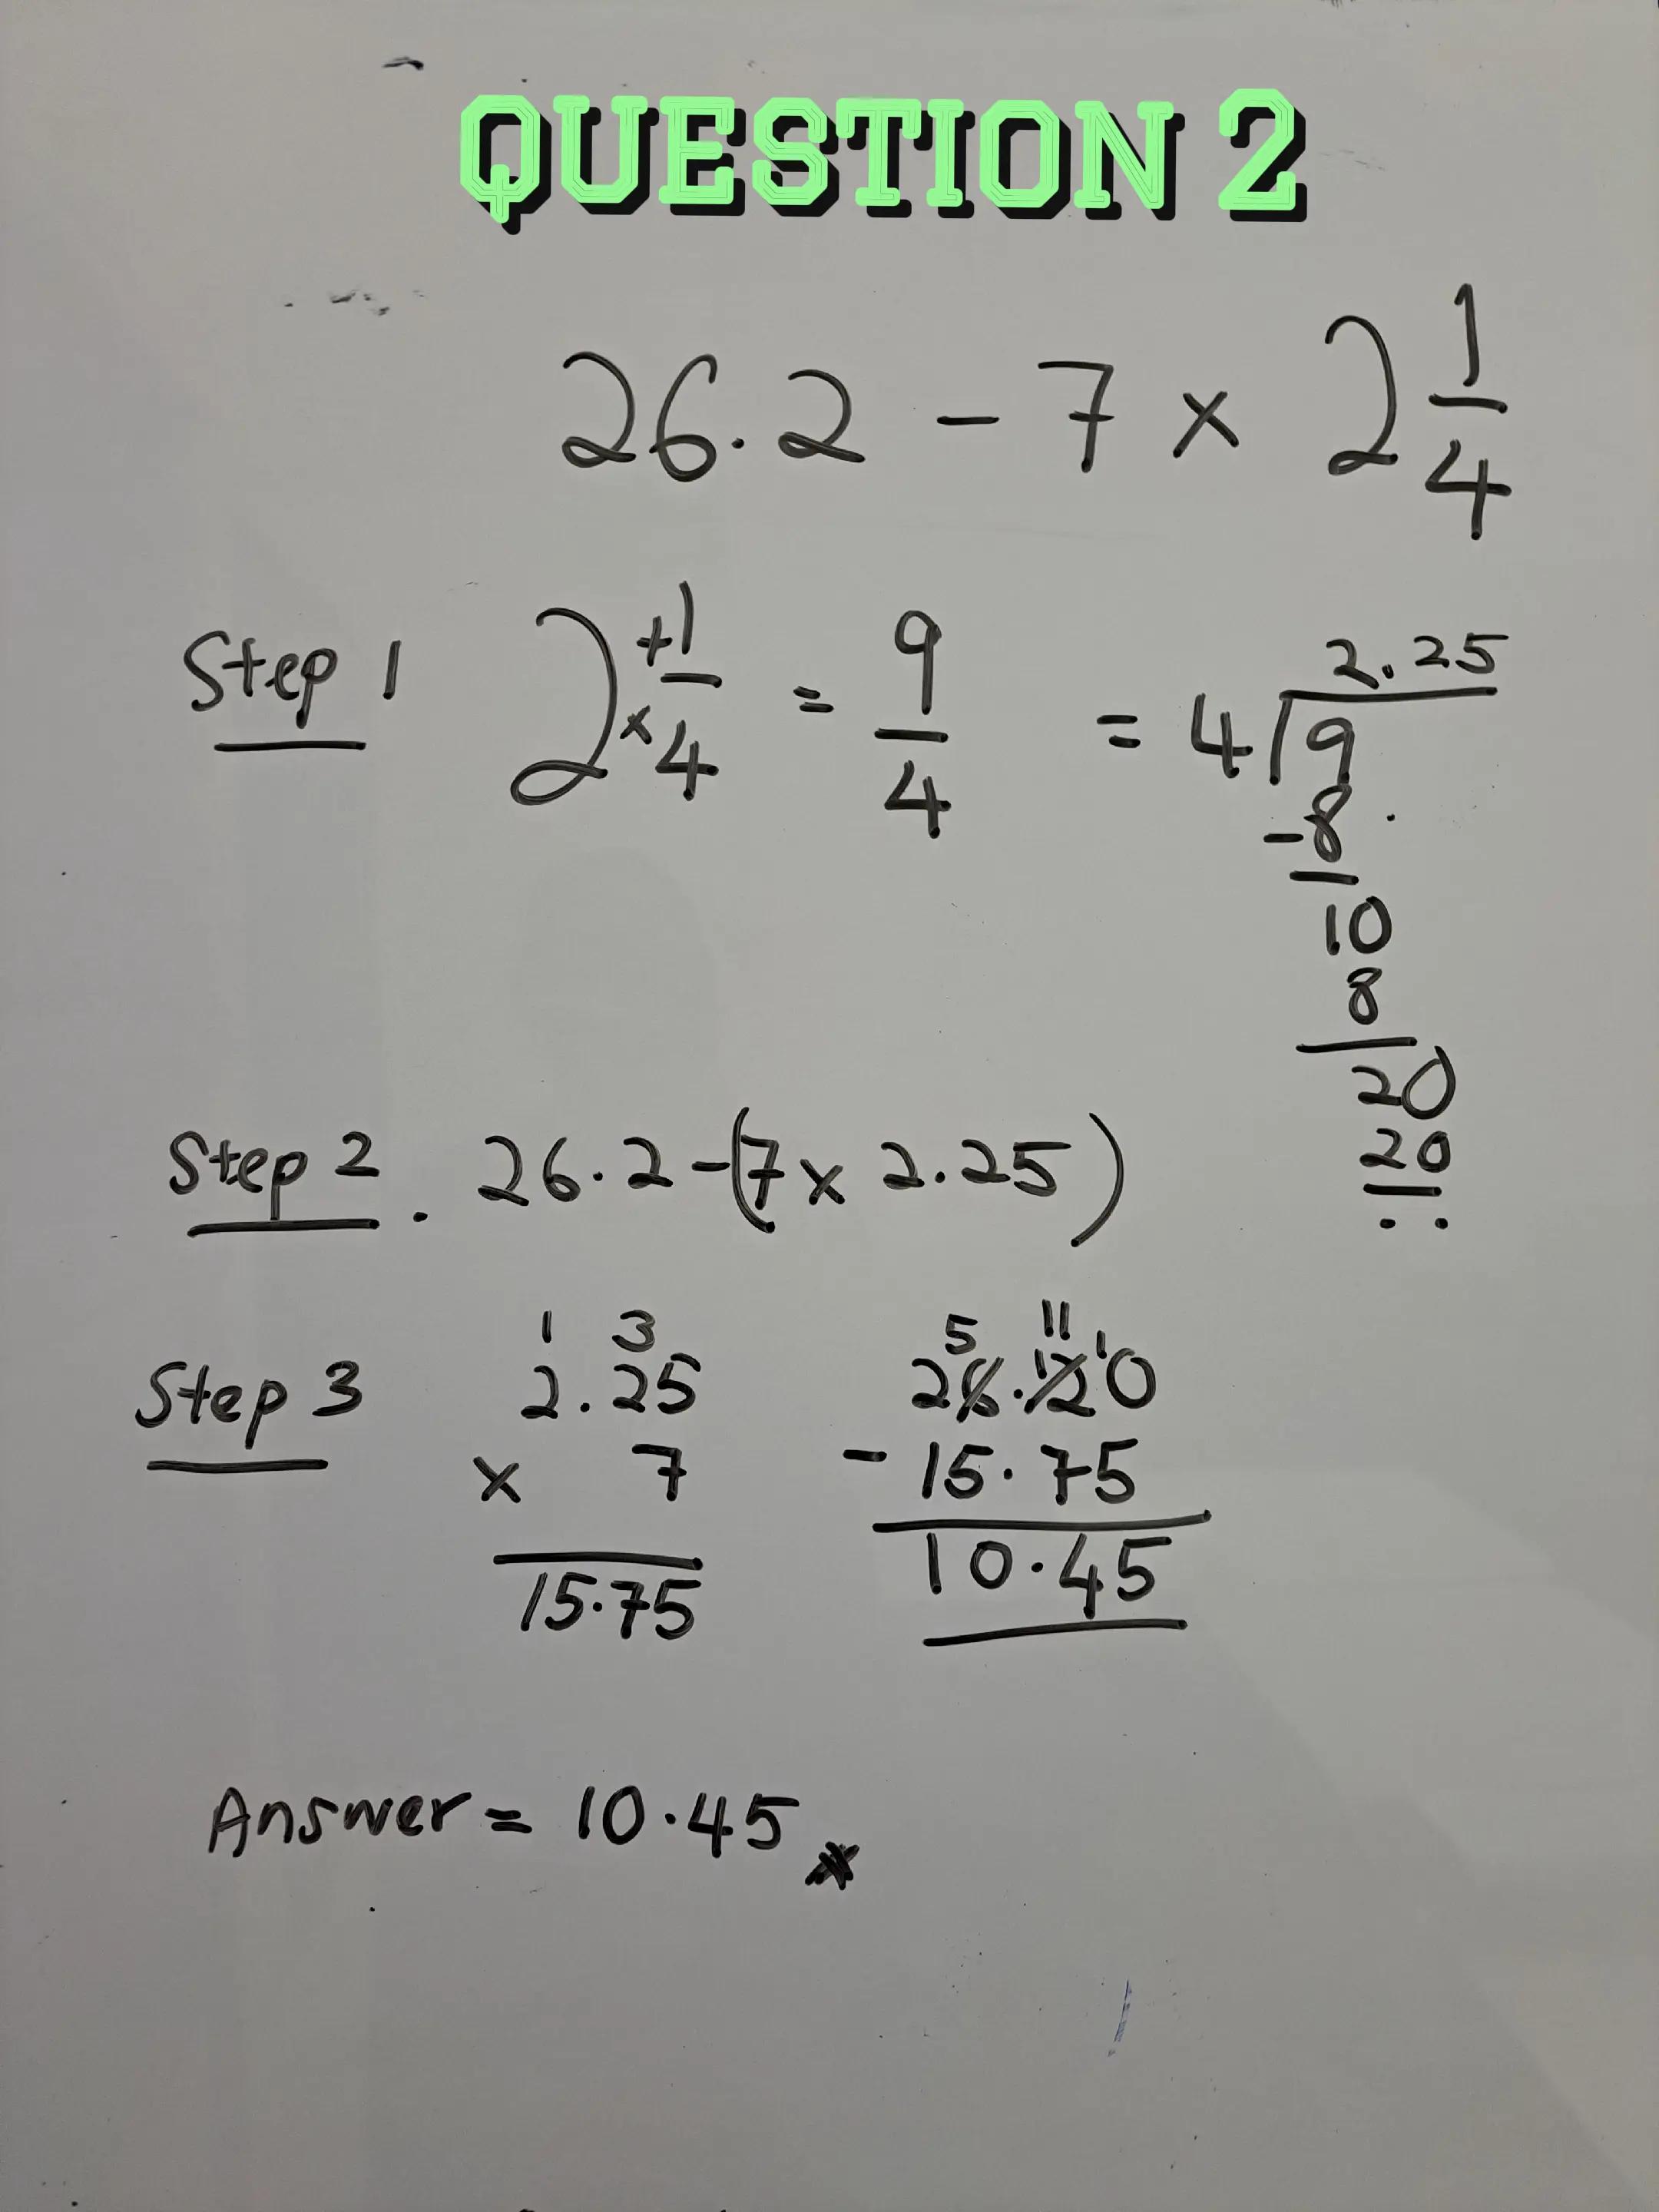 QUESTION 2
26.2 - 7 × 2 1/4
Step 1 2 × +1/4 = 9/4 = 4 ) 9
2.25
-8
10
8
20
20
Step 2. 26.2 - (7 × 2.25)
1 3 5 11 1
Step 3 2.25 26.120
× 7 - 15.75
15.75 10.45
Answer = 10.45